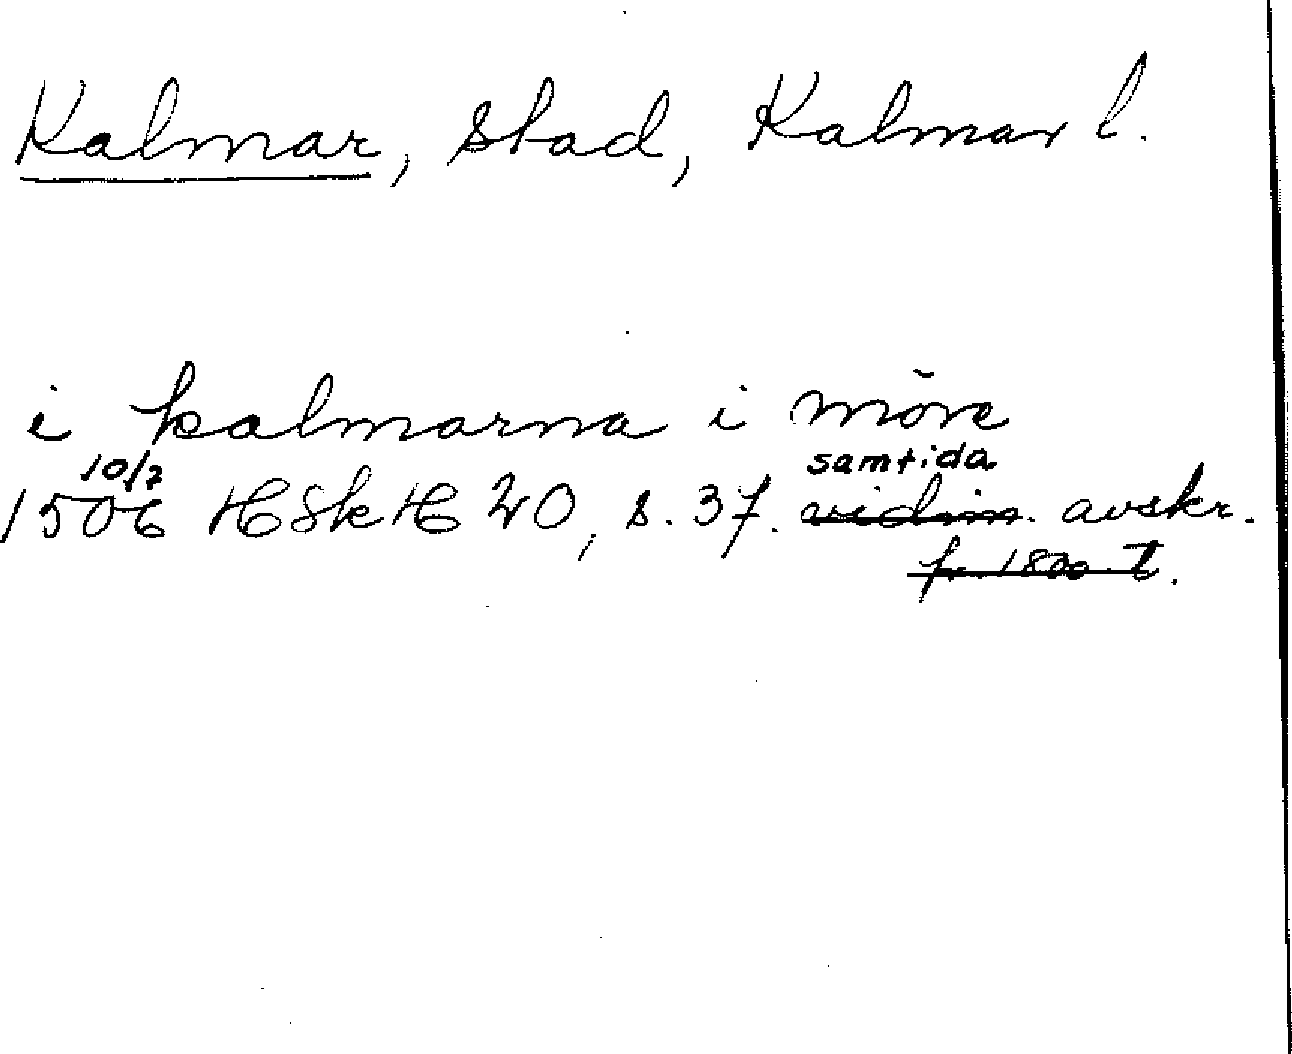 Kalmar, stad, Kalmar l.
i kalmarna i möre
10/2 samtida
1506 HSkH 20, s. 37. vidim. avskr.
fr. 1800-t.